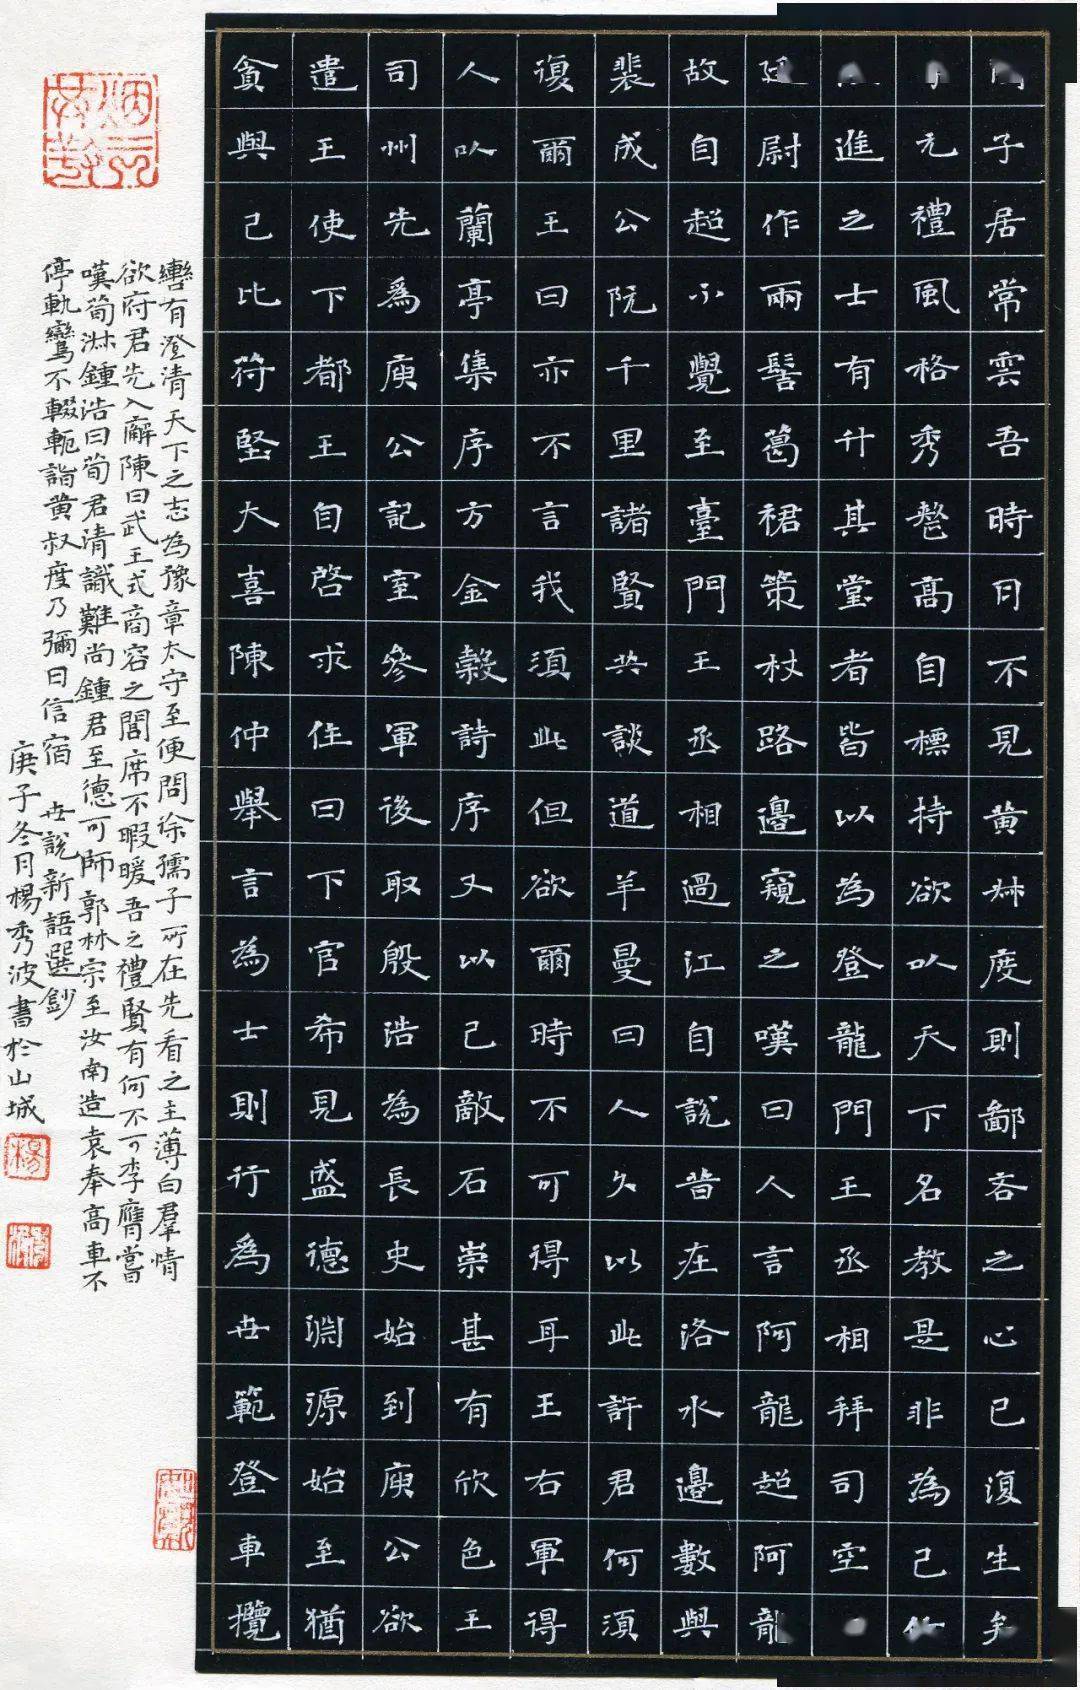 子居常雲吾時日不見黃叔度則鄙吝之心已復生矣
元禮風格秀整高自標持欲以天下名教是非為己
進之士有升其堂者皆以為登龍門王丞相拜司空
廷尉作兩髻葛裙策杖路邊窺之嘆曰人言阿龍超阿龍
故自超不覺至臺門王丞相過江自說昔在洛水邊數與
裴成公阮千里諸賢共談道羊曼曰人久以此許君何須
復爾王曰亦不言我須此但欲爾時不可得耳王右軍得
人以蘭亭集序方金穀詩序又以己敵石崇甚有欣色王
司州先為庾公記室參軍後取殷浩為長史始到庾公欲
遣王使下都王自啓求住曰下官希見盛德淵源始至猶
貪與己比苻堅大喜陳仲舉言為士則行為世範登車攬
轡有澄清天下之志為豫章太守至便問徐孺子所在先看之主薄白羣情
欲府君先入廨陳曰武王式商容之閭席不暇暖吾之禮賢有何不可李膺嘗
嘆荀淋鍾浩曰荀君清識難尚鍾君至德可師郭林宗至汝南造袁奉高車不
停軌鸞不輟軛詣黃叔度乃彌日信宿 世說新語選鈔
庚子冬月楊秀波書於山城